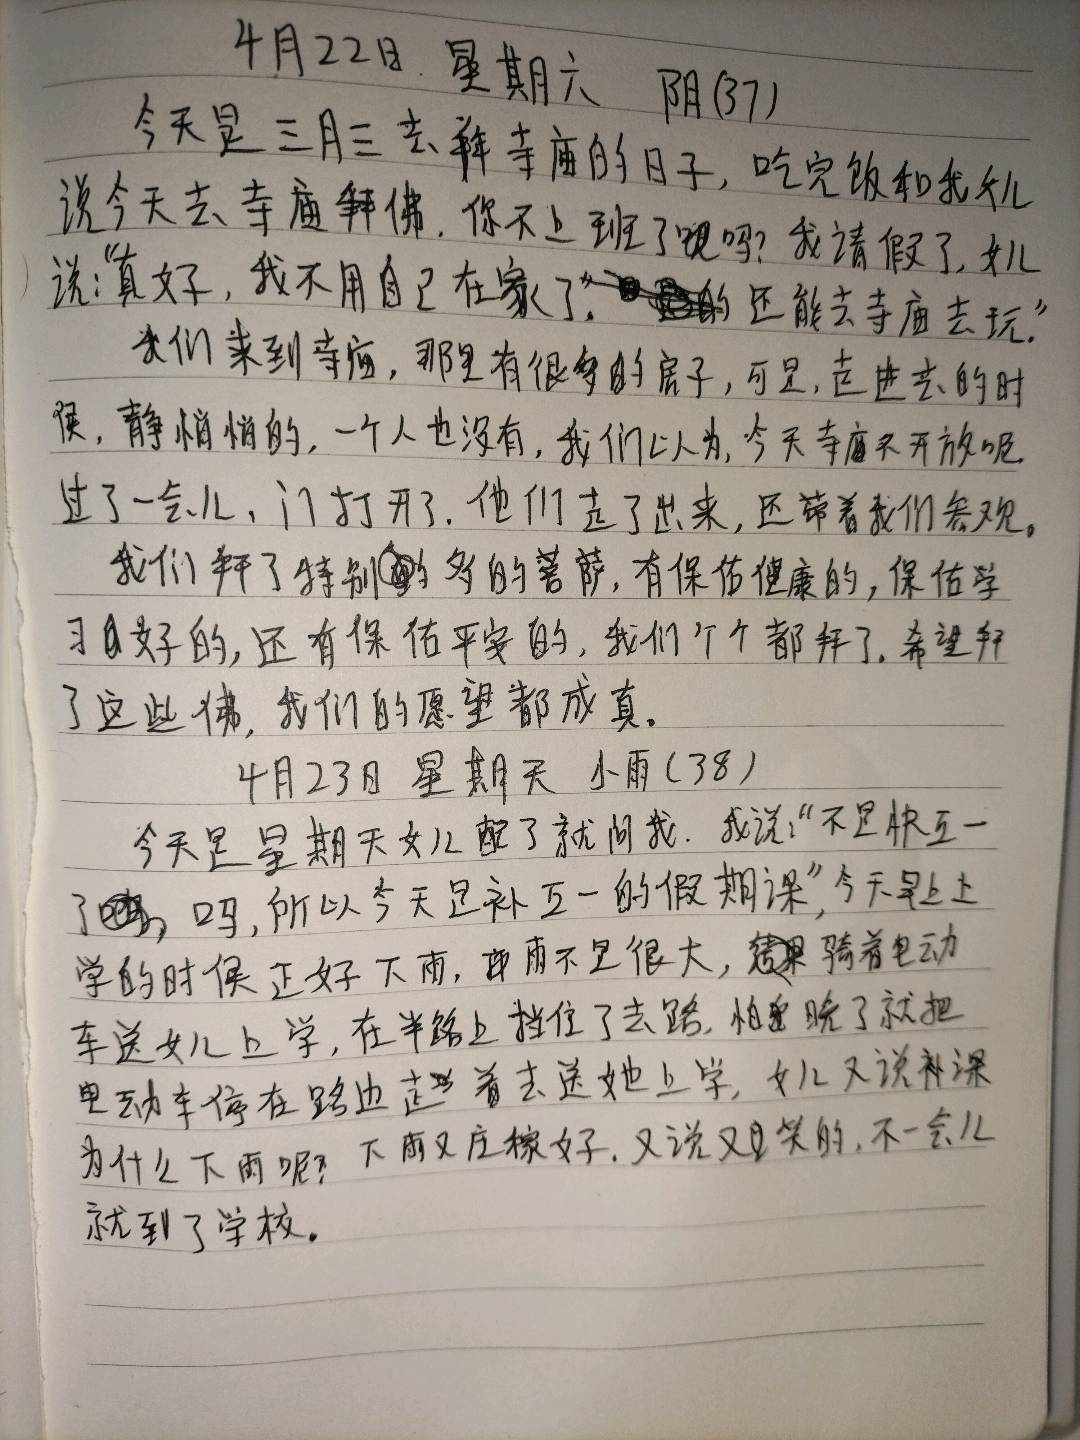 4月22日 星期六 阴(37)
今天是三月三去拜寺庙的日子,吃完饭和我女儿
说今天去寺庙拜佛.你不上班了吗?我请假了,女儿
说:“真好,我不用自己在家了。”还能去寺庙去玩.”
我们来到寺庙,那里有很多的房子,可是,走进去的时
侯,静悄悄的,一个人也没有,我们以为,今天寺庙不开放呢.
过了一会儿,门打开了.他们走了出来,还带着我们参观。
我们拜了特别多的菩萨,有保佑健康的,保佑学
习好的,还有保佑平安的,我们个个都拜了.希望拜
了这些佛,我们的愿望都成真。
4月23日 星期天 小雨(38)
今天是星期天女儿醒了就问我.我说:“不是快五一
了吗,所以今天是补五一的假期课”,今天早上上
学的时候正好下雨,雨不是很大,结果骑着电动
车送女儿上学,在半路上挡住了去路.怕晚了就把
电动车停在路边走着去送她上学,女儿又说补课
为什么下雨呢?下雨又庄稼好.又说又笑的.不一会儿
就到了学校。